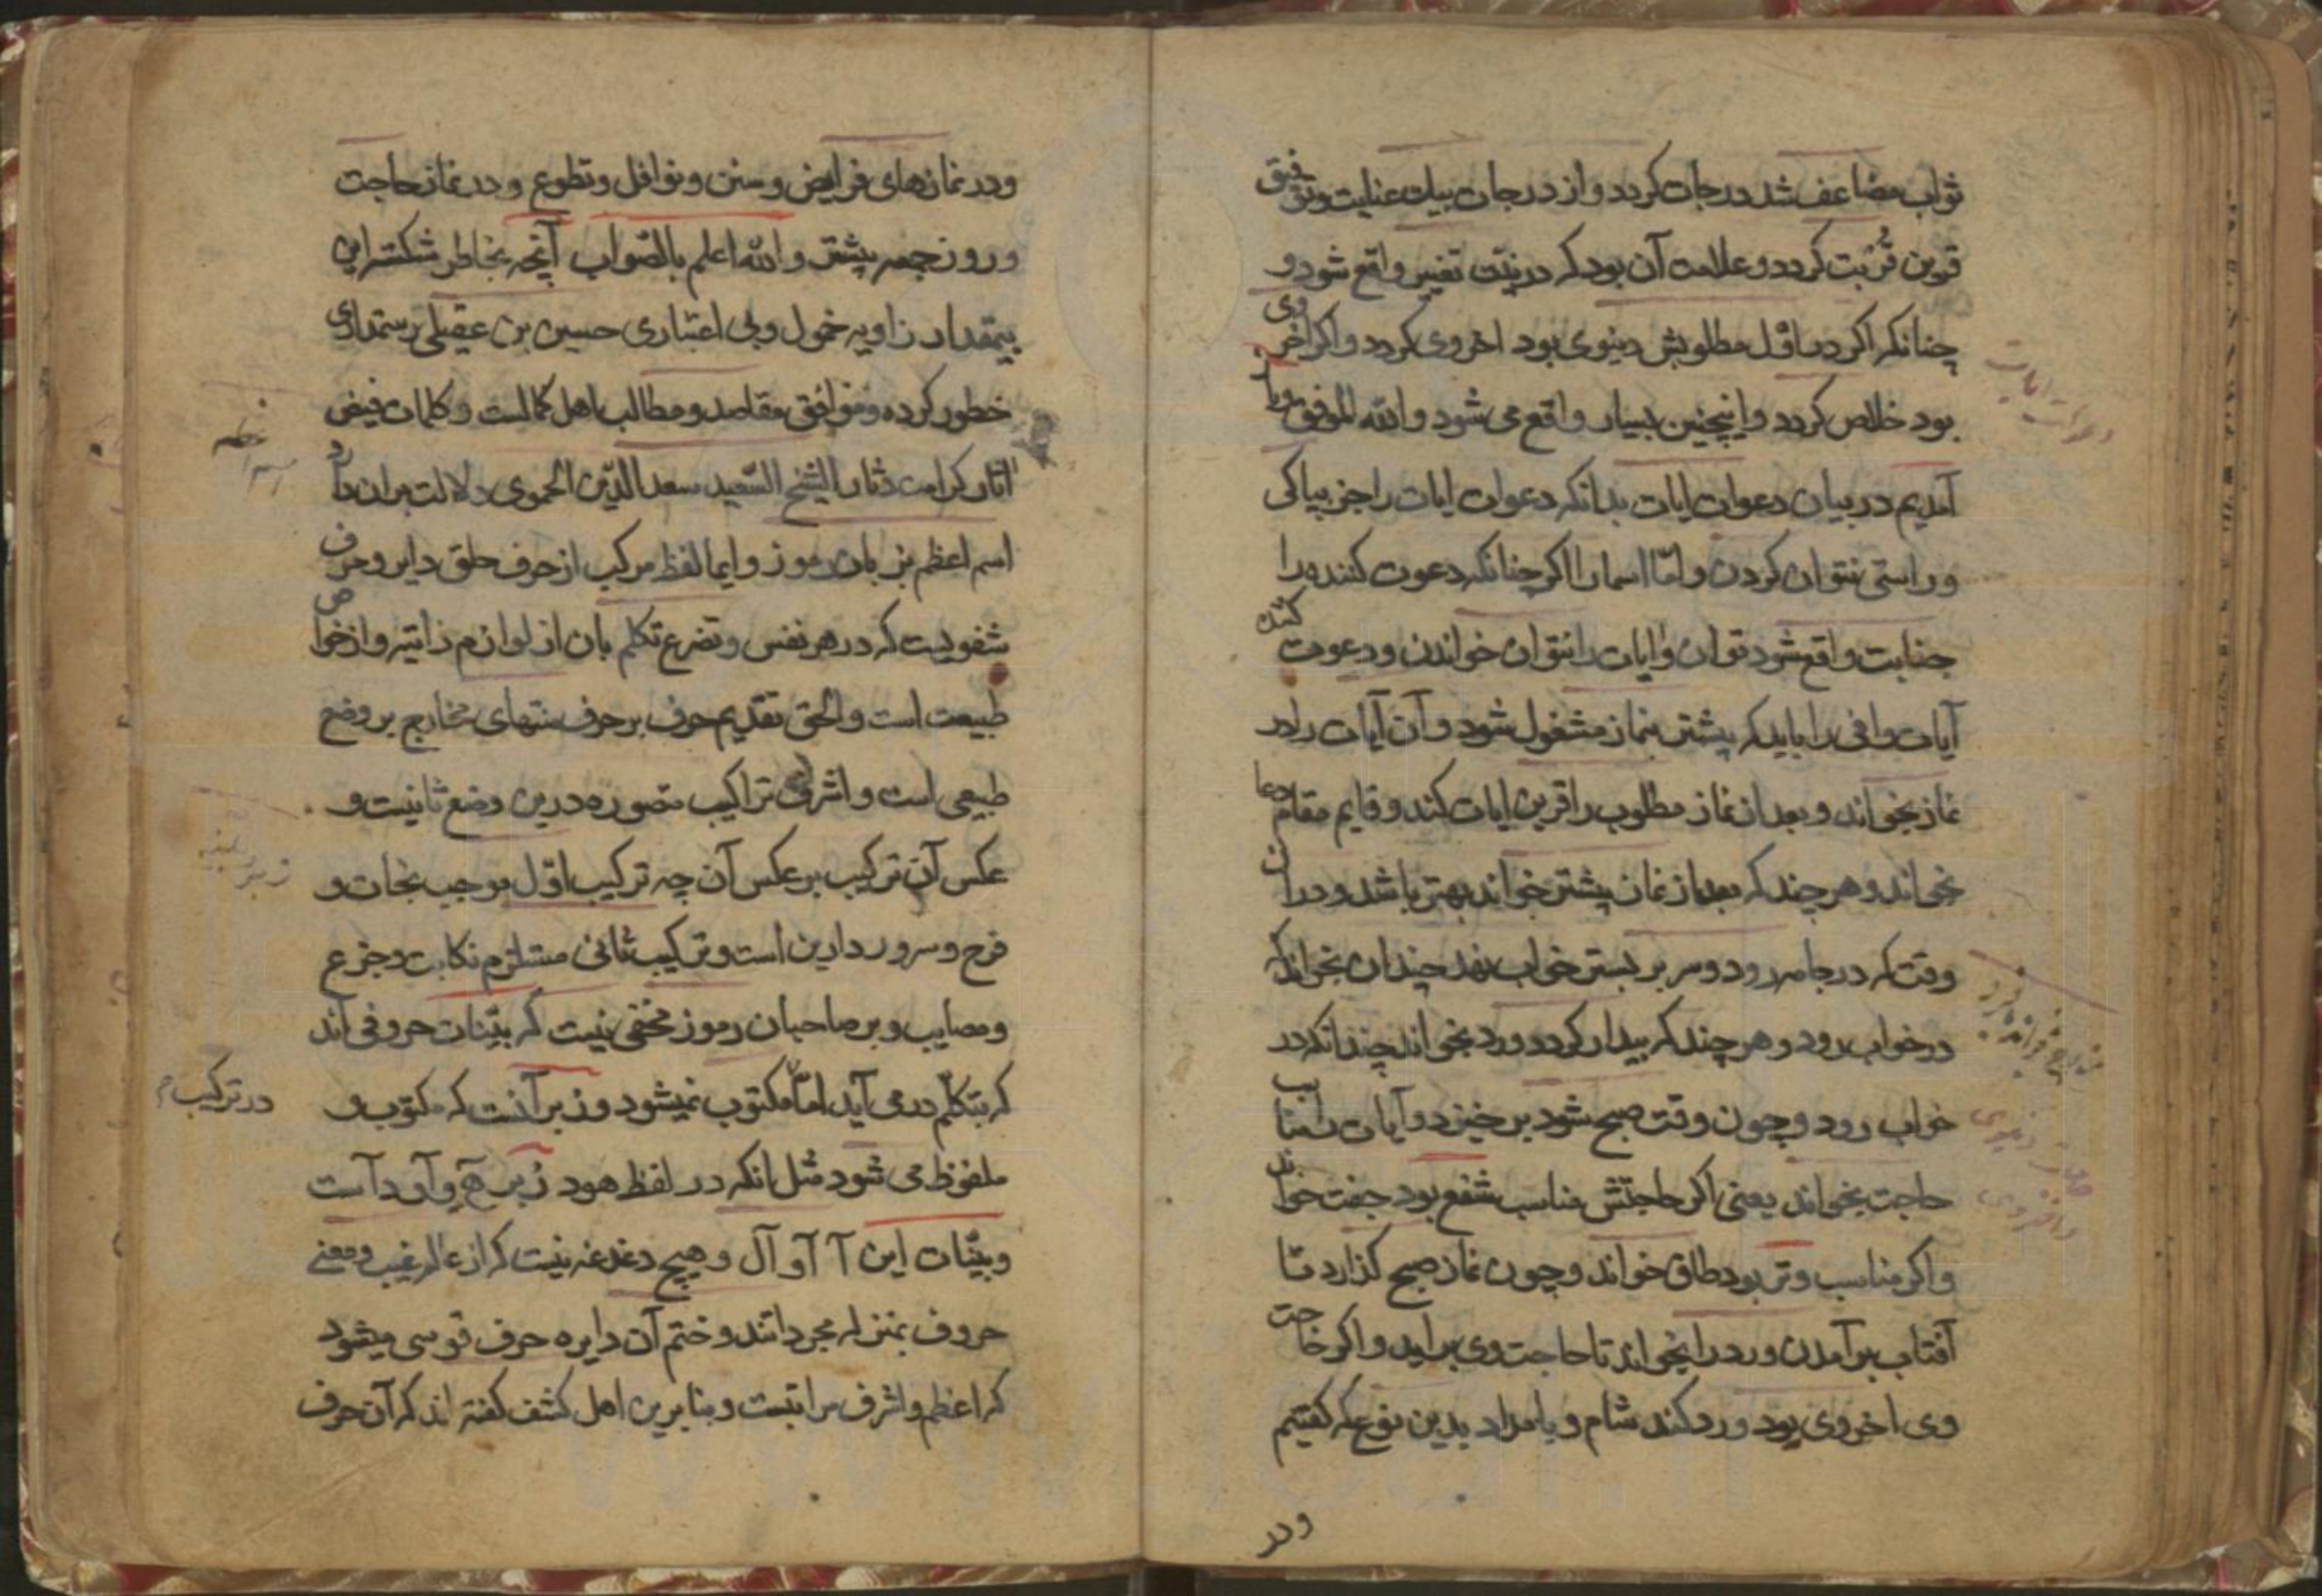 ثواب مضاعف شد درجات کردد و از درجات بیک عنایت و توفیق
قرین قُربت کردد و علامت آن بود که در نیّت تغییر واقع شود و
چنانکه اکر در اوّل مطلوبش دنیوی بود اخروی کردد و اکر اخروی
بود خلاص کردد و اینچنین بسیار واقع می شود و الله الموفق
آمدیم در بیان دعوات ایات بدانکه دعوات ایات را جز بپاکی
و راستی نتوان کردن و امّا اسما را اکر چنانکه دعوت کننده را
جنابت واقع شود توان و ایات را نتوان خواندن و دعوت کننده
آیات وافی را باید که پیشتر بنماز مشغول شود و آن آیات را در
نماز بخواند و بعد از نماز مطلوب را قرین ایات کند و قایم مقام دعا
بخواند و هر چند که بعد از نماز پیشتر خواند بهتر باشد و در آن
وقت که در جامه رود و سر بر بستر خواب نهد چندان بخواند که
در خواب رود و هر چند که بیدار کردد ورد بخواند چندانکه در
خواب رود و چون وقت صبح شود بر خیزد و آیات
حاجت بخواند یعنی اکر حاجتش مناسب شفع بود جفت خواند
و اکر مناسب وتر بود طاق خواند و چون نماز صبح کذارد تا
آفتاب برآمدن ورد را بخواند تا حاجت وی براید و اکر حاجت
وی اخروی بود ورد کند شام و بامداد بدین نوع که کفتیم
ودر
ودر نمازهای فرایض و سنن و نوافل و تطوع و در نماز حاجت
و روز جمعه پیشتر و الله اعلم بالصّواب آنچه بخاطر شکسته این
بیمقدار زاویه خمول و بی اعتباری حسین بن عقیلی رستمداری
خطور کرده و موافق مقاصد و مطالب اهل کمالست و کلمات فیض
اثار کرامت دثار الشیخ السّعید سعد الدّین الحموی دلالت بران دارد
اسم اعظم بزبان رموز و ایما لفظ مرکب از حرف حلق دایر و حرف
شفویست که در هر نفس و تضرع تکلم بان از لوازم ذاتیه و از خواص
طبیعت است و الحق تقدیم حرف بر حرف منتهای مخارج بر وضع
طبیعی است و اشرف تراکیب متصوره درین وضع ثانیت و
عکس آن ترکیب بر عکس آن چه ترکیب اوّل موجب نجات و
فرح و سرور دارین است و ترکیب ثانی مستلزم نکابت و جزع
و مصایب و بر صاحبان رموز مخفی نیست که بیّنات حروفی اند
که بتکلّم در می آید امّا مکتوب نمیشود و زبر آنست که مکتوب و
در ترکیب
ملفوظ می شود مثل انکه در لفظ هود زُبر ه و آو د است
و بیّنات این آ آو آل و هیچ دغدغه نیست که از عالم غیب و معنی
حروف بمنزله مجردانند و ختم آن دایره حرف قوسی میشود
که اعظم و اشرف مراتبست و بنابرین اهل کشف کفته اند که آن حرف